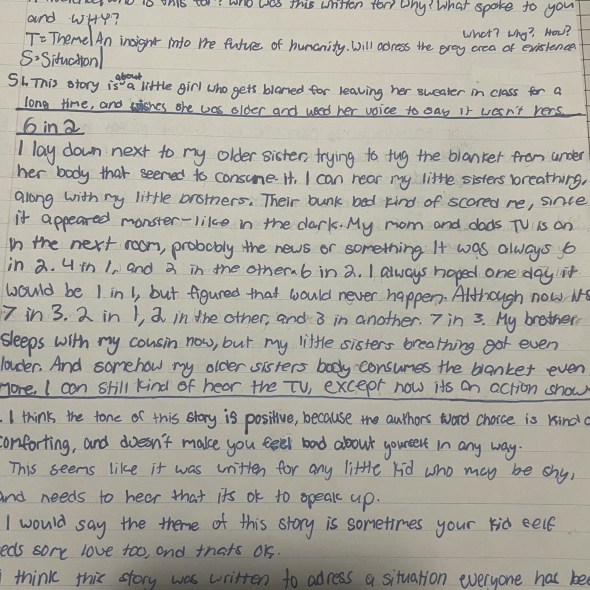 who is this for? who was this written for? why? what spoke to you
and WHY?
what? why? How?
T=Theme| An insight into the future of humanity. Will adress the grey area of existence
S=Situation|
S1. This story is about a little girl who gets blamed for leaving her sweater in class for a
long time, and wishes she was older and used her voice to say it wasn't hers.
6 in 2
I lay down next to my older sister, trying to tug the blanket from under
her body that seemed to consume it. I can hear my little sisters breathing,
along with my little brothers. Their bunk bed kind of scared me, since
it appeared monster-like in the dark. My mom and dads TV is on
in the next room, probobly the news or something It was always 6
in 2. 4 in 1, and 2 in the other. 6 in 2. I always hoped one day it
would be 1 in 1, but figured that would never happen. Although now its
7 in 3. 2 in 1, 2 in the other, and 3 in another. 7 in 3. My brother
sleeps with my cousin now, but my little sisters breathing got even
louder. And somehow my older sisters body consumes the blanket even
more. I can still kind of hear the TV, except now its an action show
. I think the tone of this story is positive, because the authors word choice is kind
comforting, and doesn't make you feel bad about yourself in any way.
This seems like it was written for any little kid who may be shy,
and needs to hear that its ok to speak up.
I would say the theme of this story is sometimes your kid self
eds some love too, and thats ok.
I think this story was written to adress a situation everyone has bee